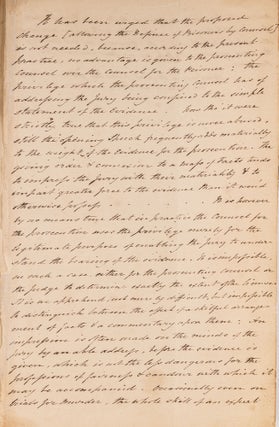 It has been urged that the proposed
change [allowing the Defence of Prisoners by Counsel]
is not needed, because, according to the present
practice, no advantage is given to the prosecuting
Counsel over the Counsel for the Prisoner; the
privilege which the prosecuting Counsel has of
addressing the Jury being confined to the simple
statement of the Evidence. Even tho' it were
strictly true that this privilege is never abused,
still the opening Speech frequently adds materially
to the weight of the Evidence for the prosecution. The
giving order & connexion to a mass of facts tends
to impress the Jury with their materiality & to
impart greater force to the evidence than it would
otherwise possess. It is however
by no means true that in practice the Counsel for
the prosecution uses the privilege merely for the
legitimate purposes of enabling the Jury to under
stand the bearing of the evidence. It is impossible
in such a case either for the prosecuting counsel or
the judge to determine exactly the extent of the
It is we apprehend, not merely difficult, but impossible
to distinguish between the effect of a skilful arrange
ment of facts & a commentary upon them; An
impression is often made on the minds of the
Jury by an able address, before the evidence is
given, which is not the less dangerous for the
professions of fairness & candour with which it
may be accompanied. Occasionally even on
trials for Murder, the whole skill of an expert